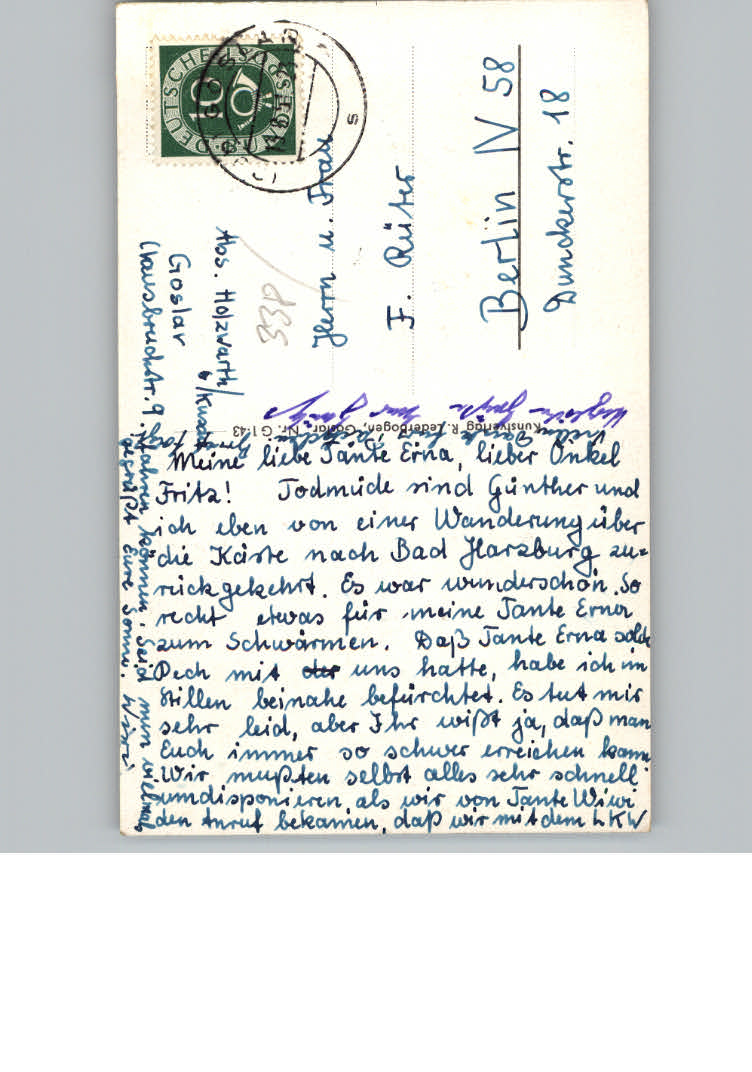 DEUTSCHE BUNDESPOST
10
GOSLAR
s
Abs. Holzwarth
Goslar
338
Herrn u. Frau
F. Rüter
Berlin IV 58
Dunckerstr. 18
Kunstverlag R. Lederbogen, Goslar, Nr. G1-43
Meine liebe Tante Erna, lieber Onkel
Fritz! Todmüde sind Günther und
ich eben von einer Wanderung über
die Käste nach Bad Harzburg zu=
rückgekehrt. Es war wunderschön. So
recht etwas für meine Tante Erna
zum Schwärmen. Daß Tante Erna solch
Pech mit der uns hatte, habe ich im
Stillen beinahe befürchtet. Es tut mir
sehr leid, aber Ihr wißt ja, daß man
Euch immer so schwer erreichen kann.
Wir mußten selbst alles sehr schnell
umdisponieren, als wir von Tante Wiwi
den Anruf bekamen, daß wir mit dem LKW
fahren können. Seid nun vielmals
gegrüßt Eure Sonne.